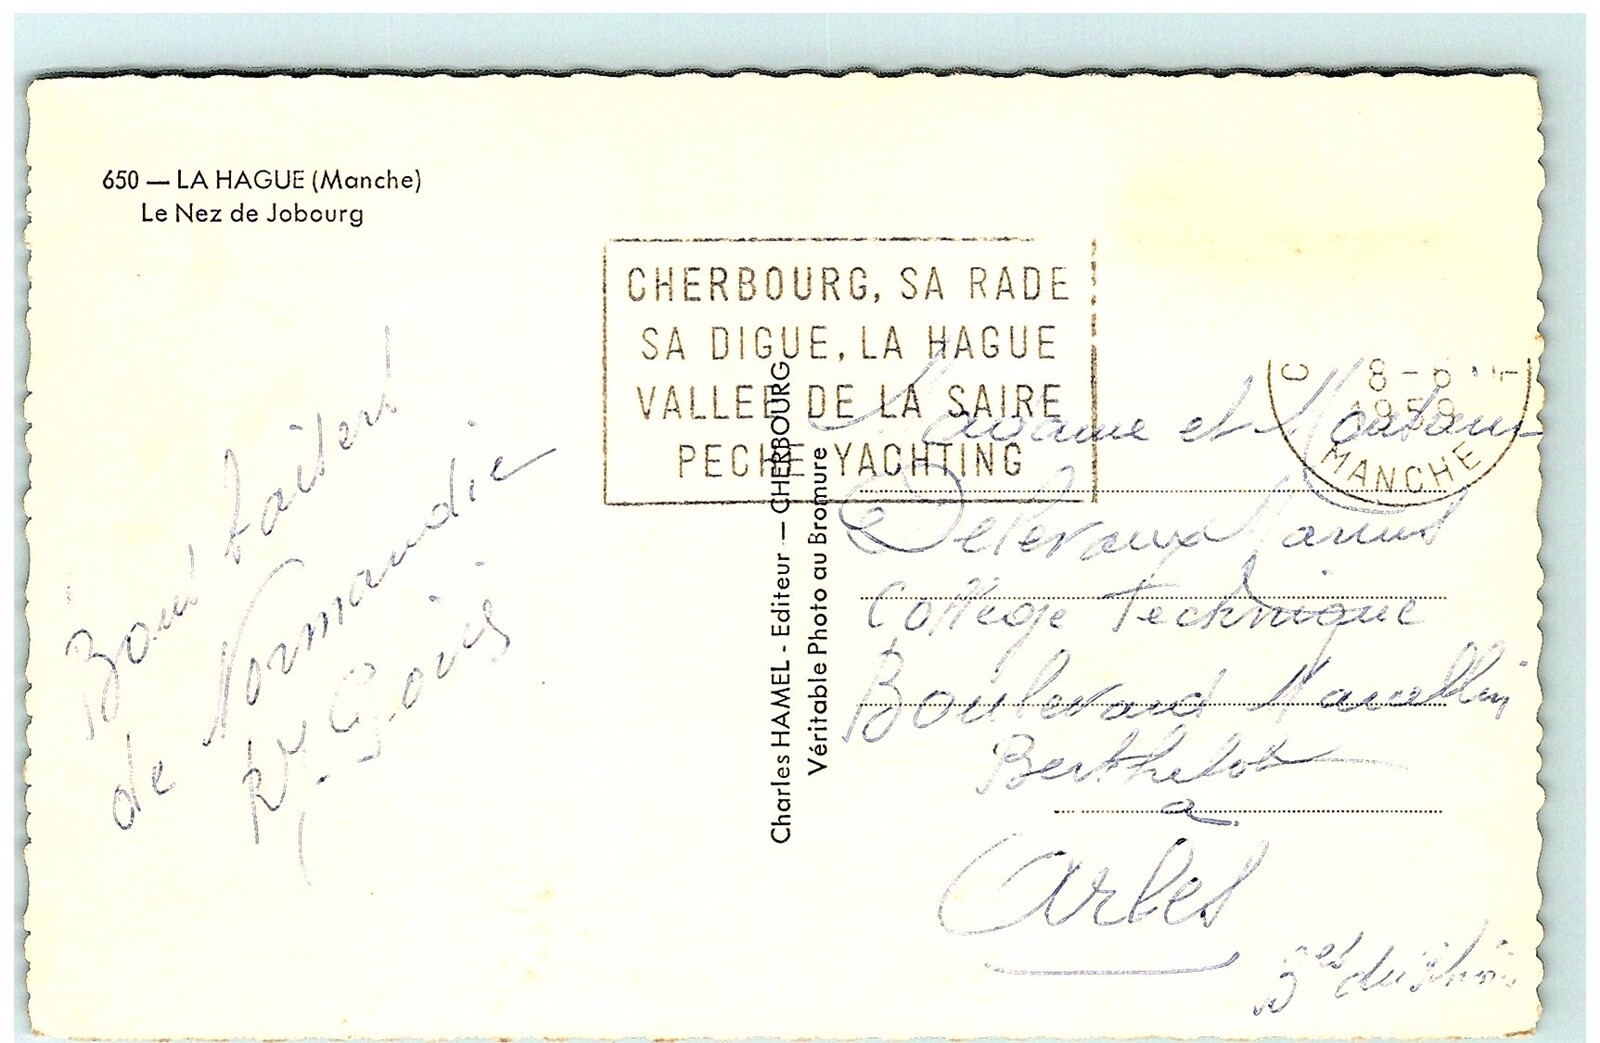 650 — LA HAGUE (Manche)
Le Nez de Jobourg
CHERBOURG, SA RADE
SA DIGUE, LA HAGUE
VALLEE DE LA SAIRE
PECHE YACHTING
8 - 6
1959
MANCHE
Charles HAMEL - Editeur — CHERBOURG
Véritable Photo au Bromure
de Normandie
Madame et Monsieur
College Technique
Boulevard Marcellin
Berthelot
a
Arles